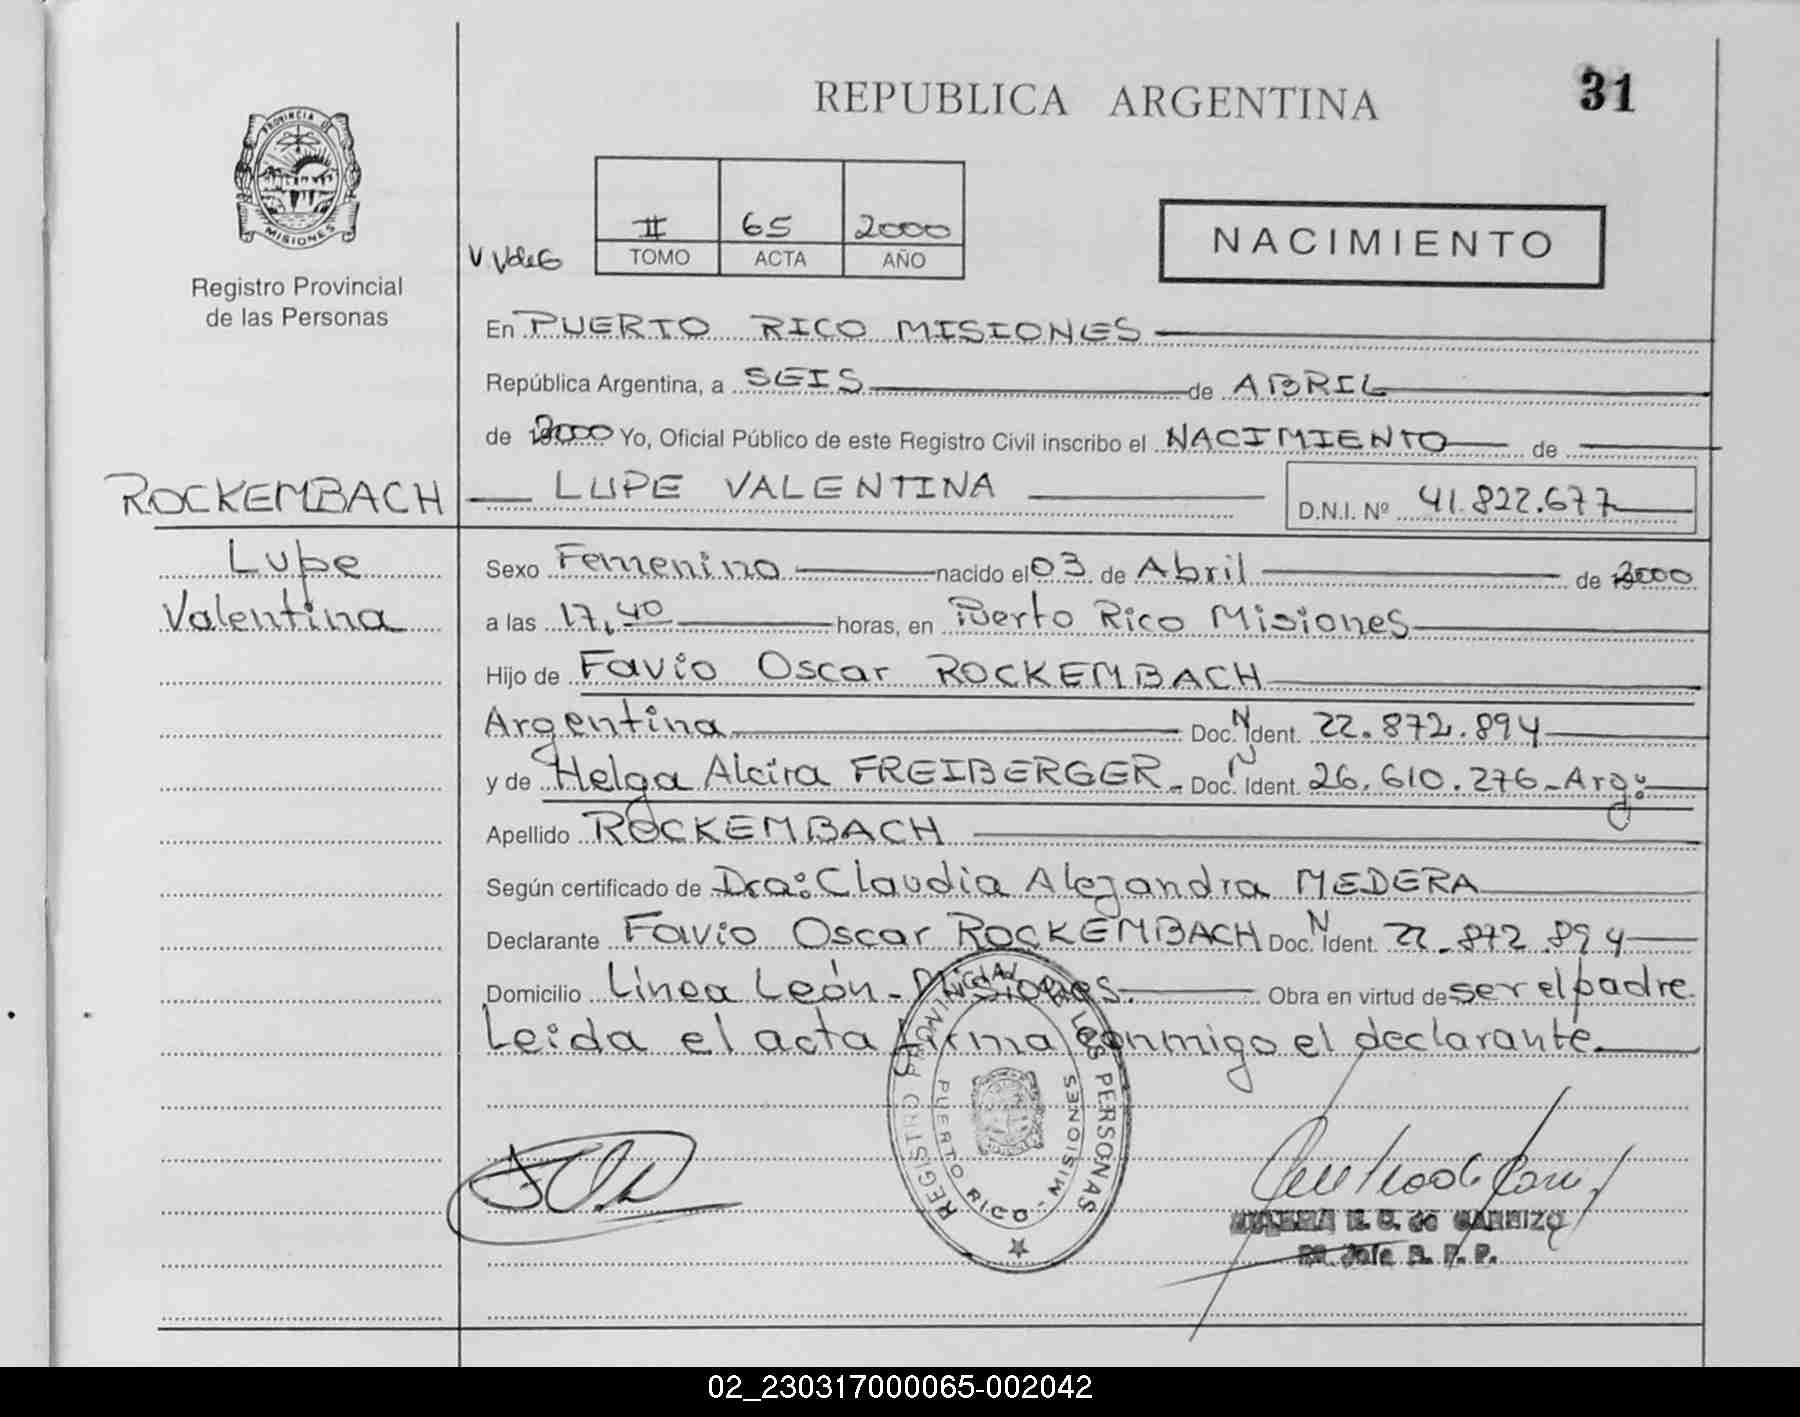 REPUBLICA ARGENTINA
31
PROVINCIA DE
MISIONES
Registro Provincial
de las Personas
II 65 2000
TOMO ACTA AÑO
NACIMIENTO
En PUERTO RICO MISIONES
República Argentina, a SEIS de ABRIL
de 2000 Yo, Oficial Público de este Registro Civil inscribo el NACIMIENTO de
ROCKEMBACH
LUPE VALENTINA
D.N.I. Nº 41.822.677
Lupe
Valentina
Sexo Femenino nacido el 03 de Abril de 2000
a las 17,40 horas, en Puerto Rico Misiones
Hijo de Favio Oscar ROCKEMBACH
Argentina Doc. N Ident. 22.872.894
y de Helga Alcira FREIBERGER - Doc. N Ident. 26.610.276-Arg:
Apellido ROCKEMBACH
Según certificado de Dra: Claudia Alejandra MEDERA
Declarante Favio Oscar ROCKEMBACH Doc. N Ident. 22.872.894
Domicilio Linea León - Misiones. Obra en virtud de ser el padre.
Leida el acta firma conmigo el declarante.
REGISTRO PROVINCIAL DE LAS PERSONAS
PUERTO RICO - MISIONES
de CARRIZO
02_230317000065-002042